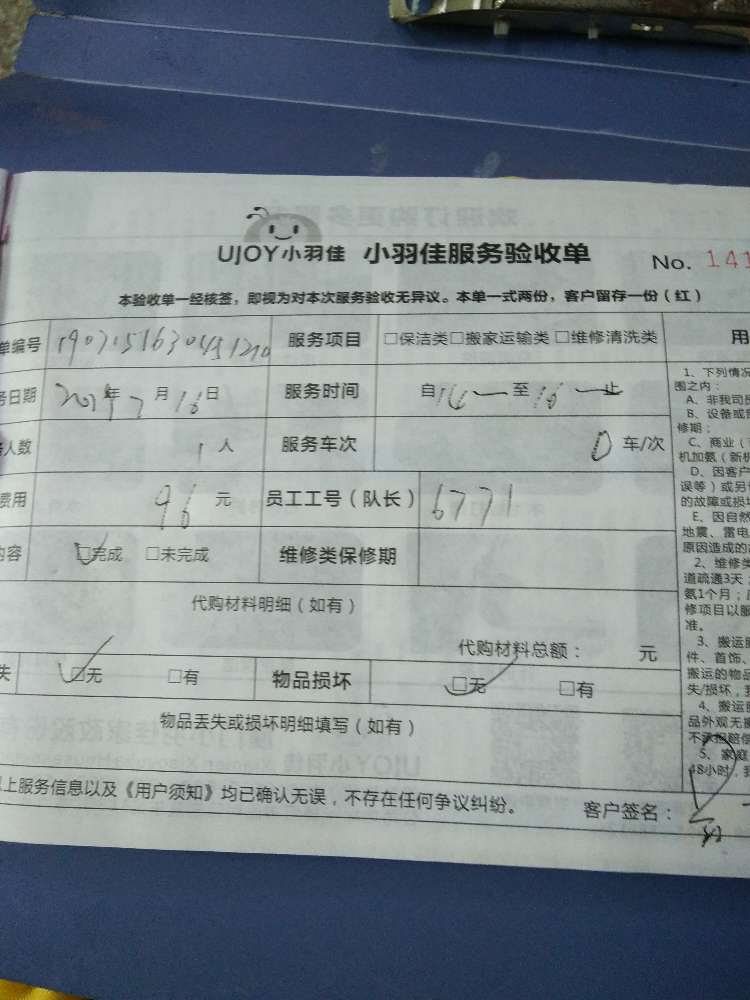 UJOY小羽佳 小羽佳服务验收单 No. 141
本验收单一经核签，即视为对本次服务验收无异议。本单一式两份，客户留存一份（红）
单编号 服务项目 □保洁类□搬家运输类□维修清洗类 用
务日期 2019年2月16日 服务时间 自14一至16一止
人数 1人 服务车次 0车/次
费用 96元 员工工号（队长） 6771
内容 □完成 □未完成 维修类保修期
代购材料明细（如有）
代购材料总额： 元
失 □无 □有 物品损坏 □无 □有
物品丢失或损坏明细填写（如有）
上服务信息以及《用户须知》均已确认无误，不存在任何争议纠纷。 客户签名：
1、下列情况
围之内：
A、非我司员
B、设备或
修期；
C、商业（
机加氨（新机
D、因客户
误等）或另
的故障或损
E、因自然
地震、雷电
原因造成的
2、维修类
道疏通3天；
氨1个月；
修项目以服
准。
3、搬运
件、首饰、
搬运的物品
失/损坏，
4、搬运
品外观无
不承担赔偿
5、家庭
48小时，